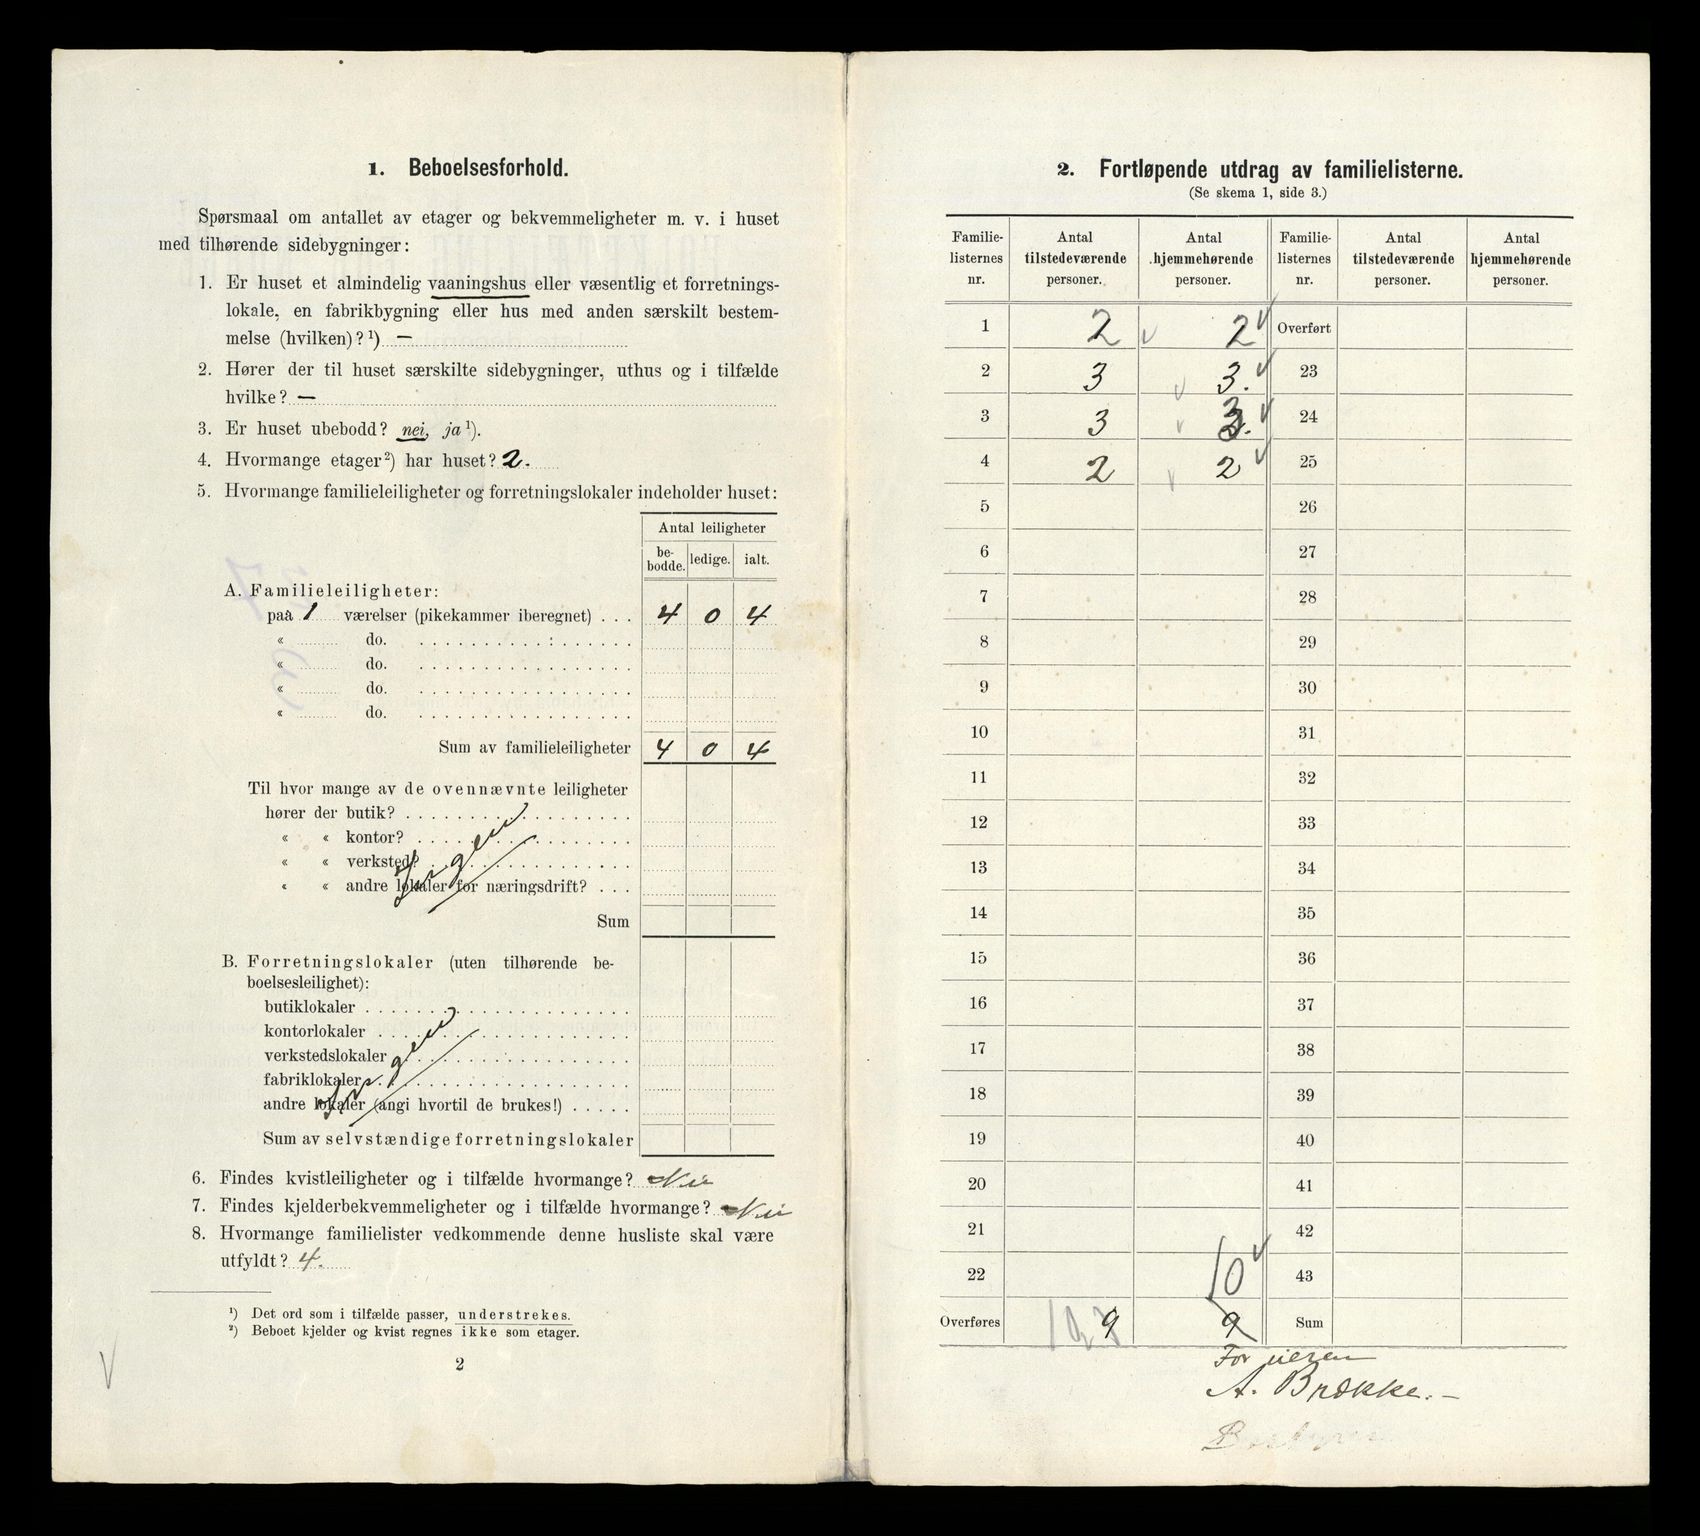 1. Beboelsesforhold.
Spørsmaal om antallet av etager og bekvemmeligheter m. v. i huset
med tilhørende sidebygninger:
1. Er huset et almindelig vaaningshus eller væsentlig et forretnings-
lokale, en fabrikbygning eller hus med anden særskilt bestem-
melse (hvilken)?¹) —
2. Hører der til huset særskilte sidebygninger, uthus og i tilfælde
hvilke? —
3. Er huset ubebodd? nei, ja¹).
4. Hvormange etager²) har huset? 2.
5. Hvormange familieleiligheter og forretningslokaler indeholder huset:
Antal leiligheter
be-
bodde. ledige. ialt.
A. Familieleiligheter:
paa 1 værelser (pikekammer iberegnet) . . . 4 0 4
« do.
« do.
« do.
« do.
Sum av familieleiligheter 4 0 4
Til hvor mange av de ovennævnte leiligheter
hører der butik?
« « kontor?
« « verksted?
« « andre lokaler for næringsdrift? . . .
Ingen
Sum
B. Forretningslokaler (uten tilhørende be-
boelsesleilighet):
butiklokaler
kontorlokaler
verkstedslokaler
fabriklokaler
andre lokaler (angi hvortil de brukes!) . . . . .
Ingen
Sum av selvstændige forretningslokaler
6. Findes kvistleiligheter og i tilfælde hvormange? Nei
7. Findes kjelderbekvemmeligheter og i tilfælde hvormange? Nei
8. Hvormange familielister vedkommende denne husliste skal være
utfyldt? 4.
¹) Det ord som i tilfælde passer, understrekes.
²) Beboet kjelder og kvist regnes ikke som etager.
2
2. Fortløpende utdrag av familielisterne.
(Se skema 1, side 3.)
Familie-
listernes
nr. Antal
tilstedeværende
personer. Antal
hjemmehørende
personer. Familie-
listernes
nr. Antal
tilstedeværende
personer. Antal
hjemmehørende
personer.
1 2 2 Overført
2 3 3. 23
3 3 3. 24
4 2 2 25
5 26
6 27
7 28
8 29
9 30
10 31
11 32
12 33
13 34
14 35
15 36
16 37
17 38
18 39
19 40
20 41
21 42
22 10 43
Overføres 9 9 Sum
For eieren
A. Brække. —